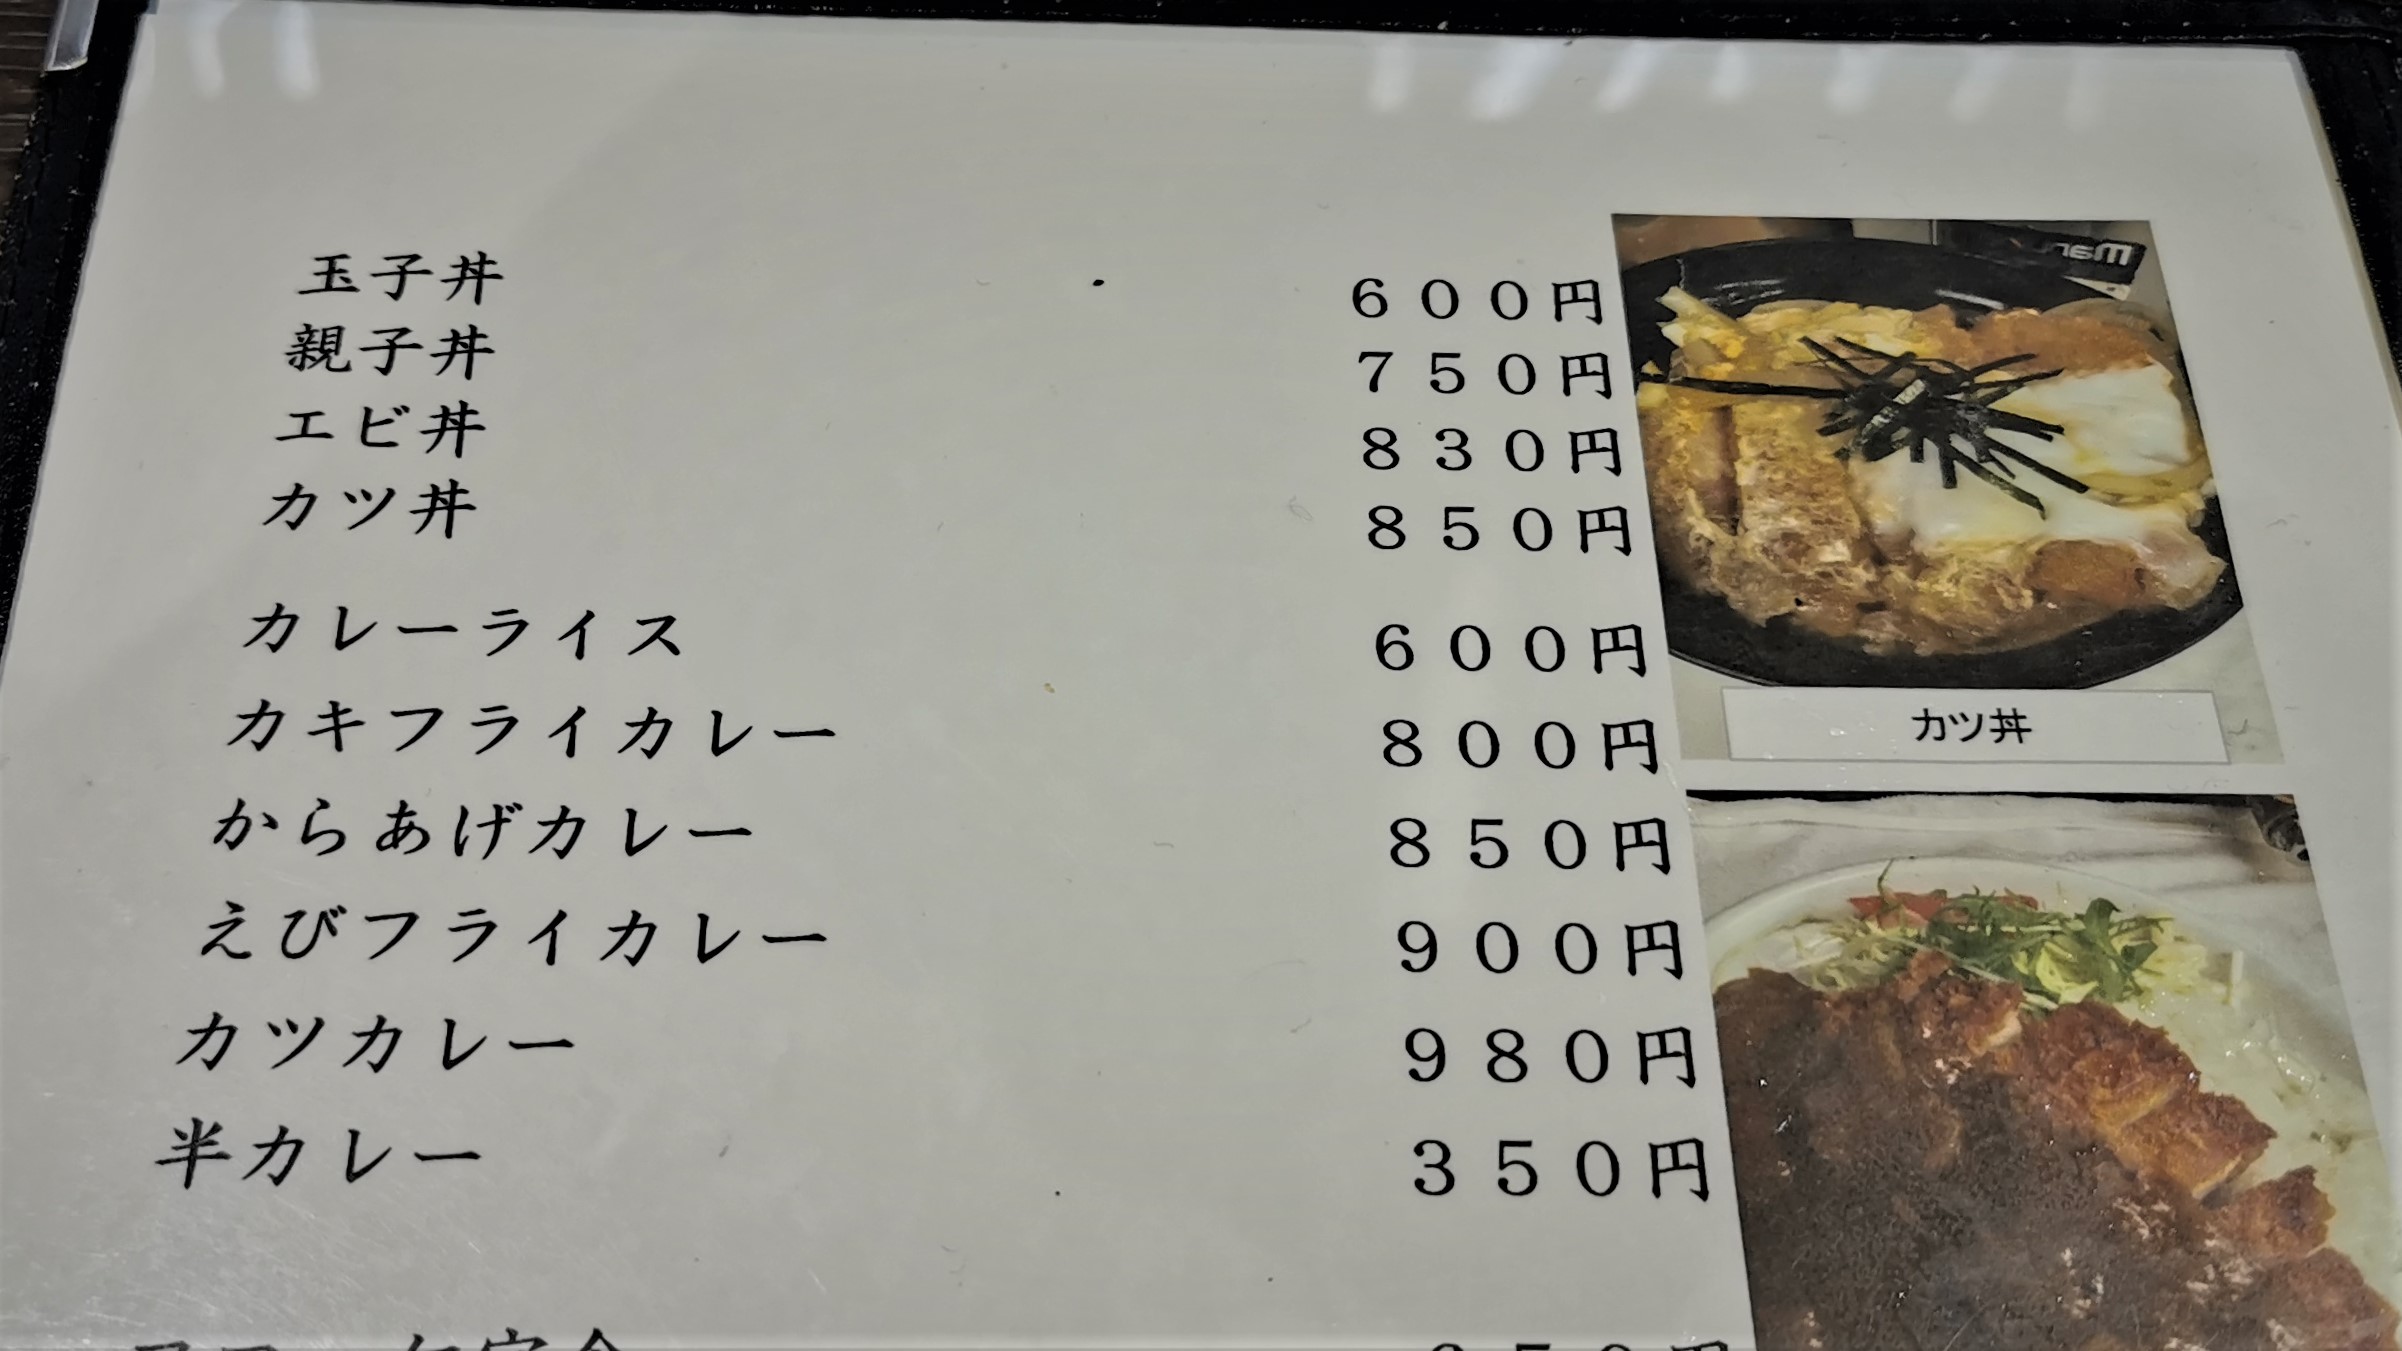 玉子丼 600円
親子丼 750円
エビ丼 830円
カツ丼 850円
カレーライス 600円
カキフライカレー 800円
からあげカレー 850円
えびフライカレー 900円
カツカレー 980円
半カレー 350円
カツ丼